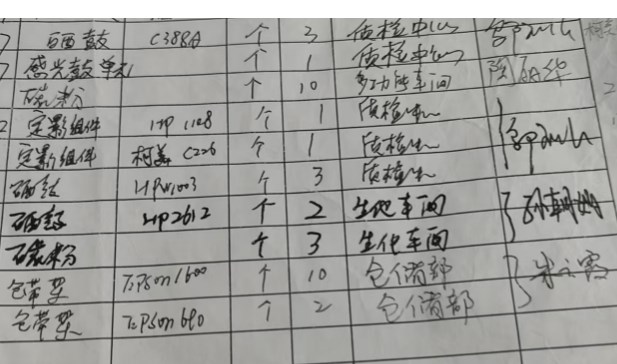 硒鼓 C388A 个 3 质检中心
感光鼓单元 个 1 质检中心
碳粉 个 10 多功能车间
定影组件 HP 1108 个 1 质检中心
定影组件 柯美 C226 个 1 质检中心
硒鼓 HPW1003 个 3 质检中心
硒鼓 HP2612 个 2 生化车间
碳粉 个 3 生化车间
色带架 Epson1600 个 10 仓储部
色带架 Epson 690 个 2 仓储部